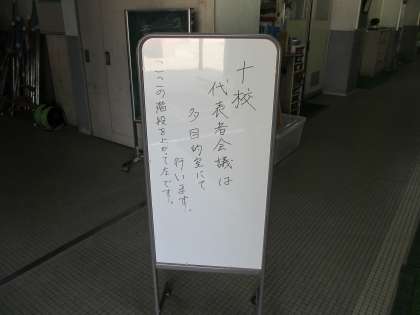 十校
代表者会議は
多目的室にて
行います。
ここの階段を上がって左です。